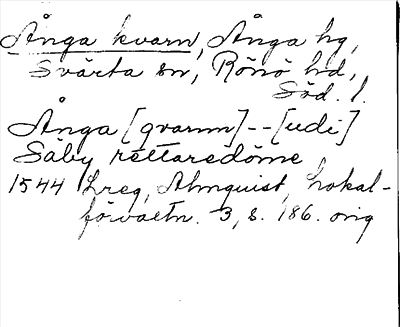 Ånga kvarn, Ånga hg,
Svärta sn, Rönö hd,
Söd. l.
Ånga [qvarnn]--[udi]
Säby rettaredöme
1544 Lreg, Almquist, Lokal-
förvaltn. 3, s. 186. orig